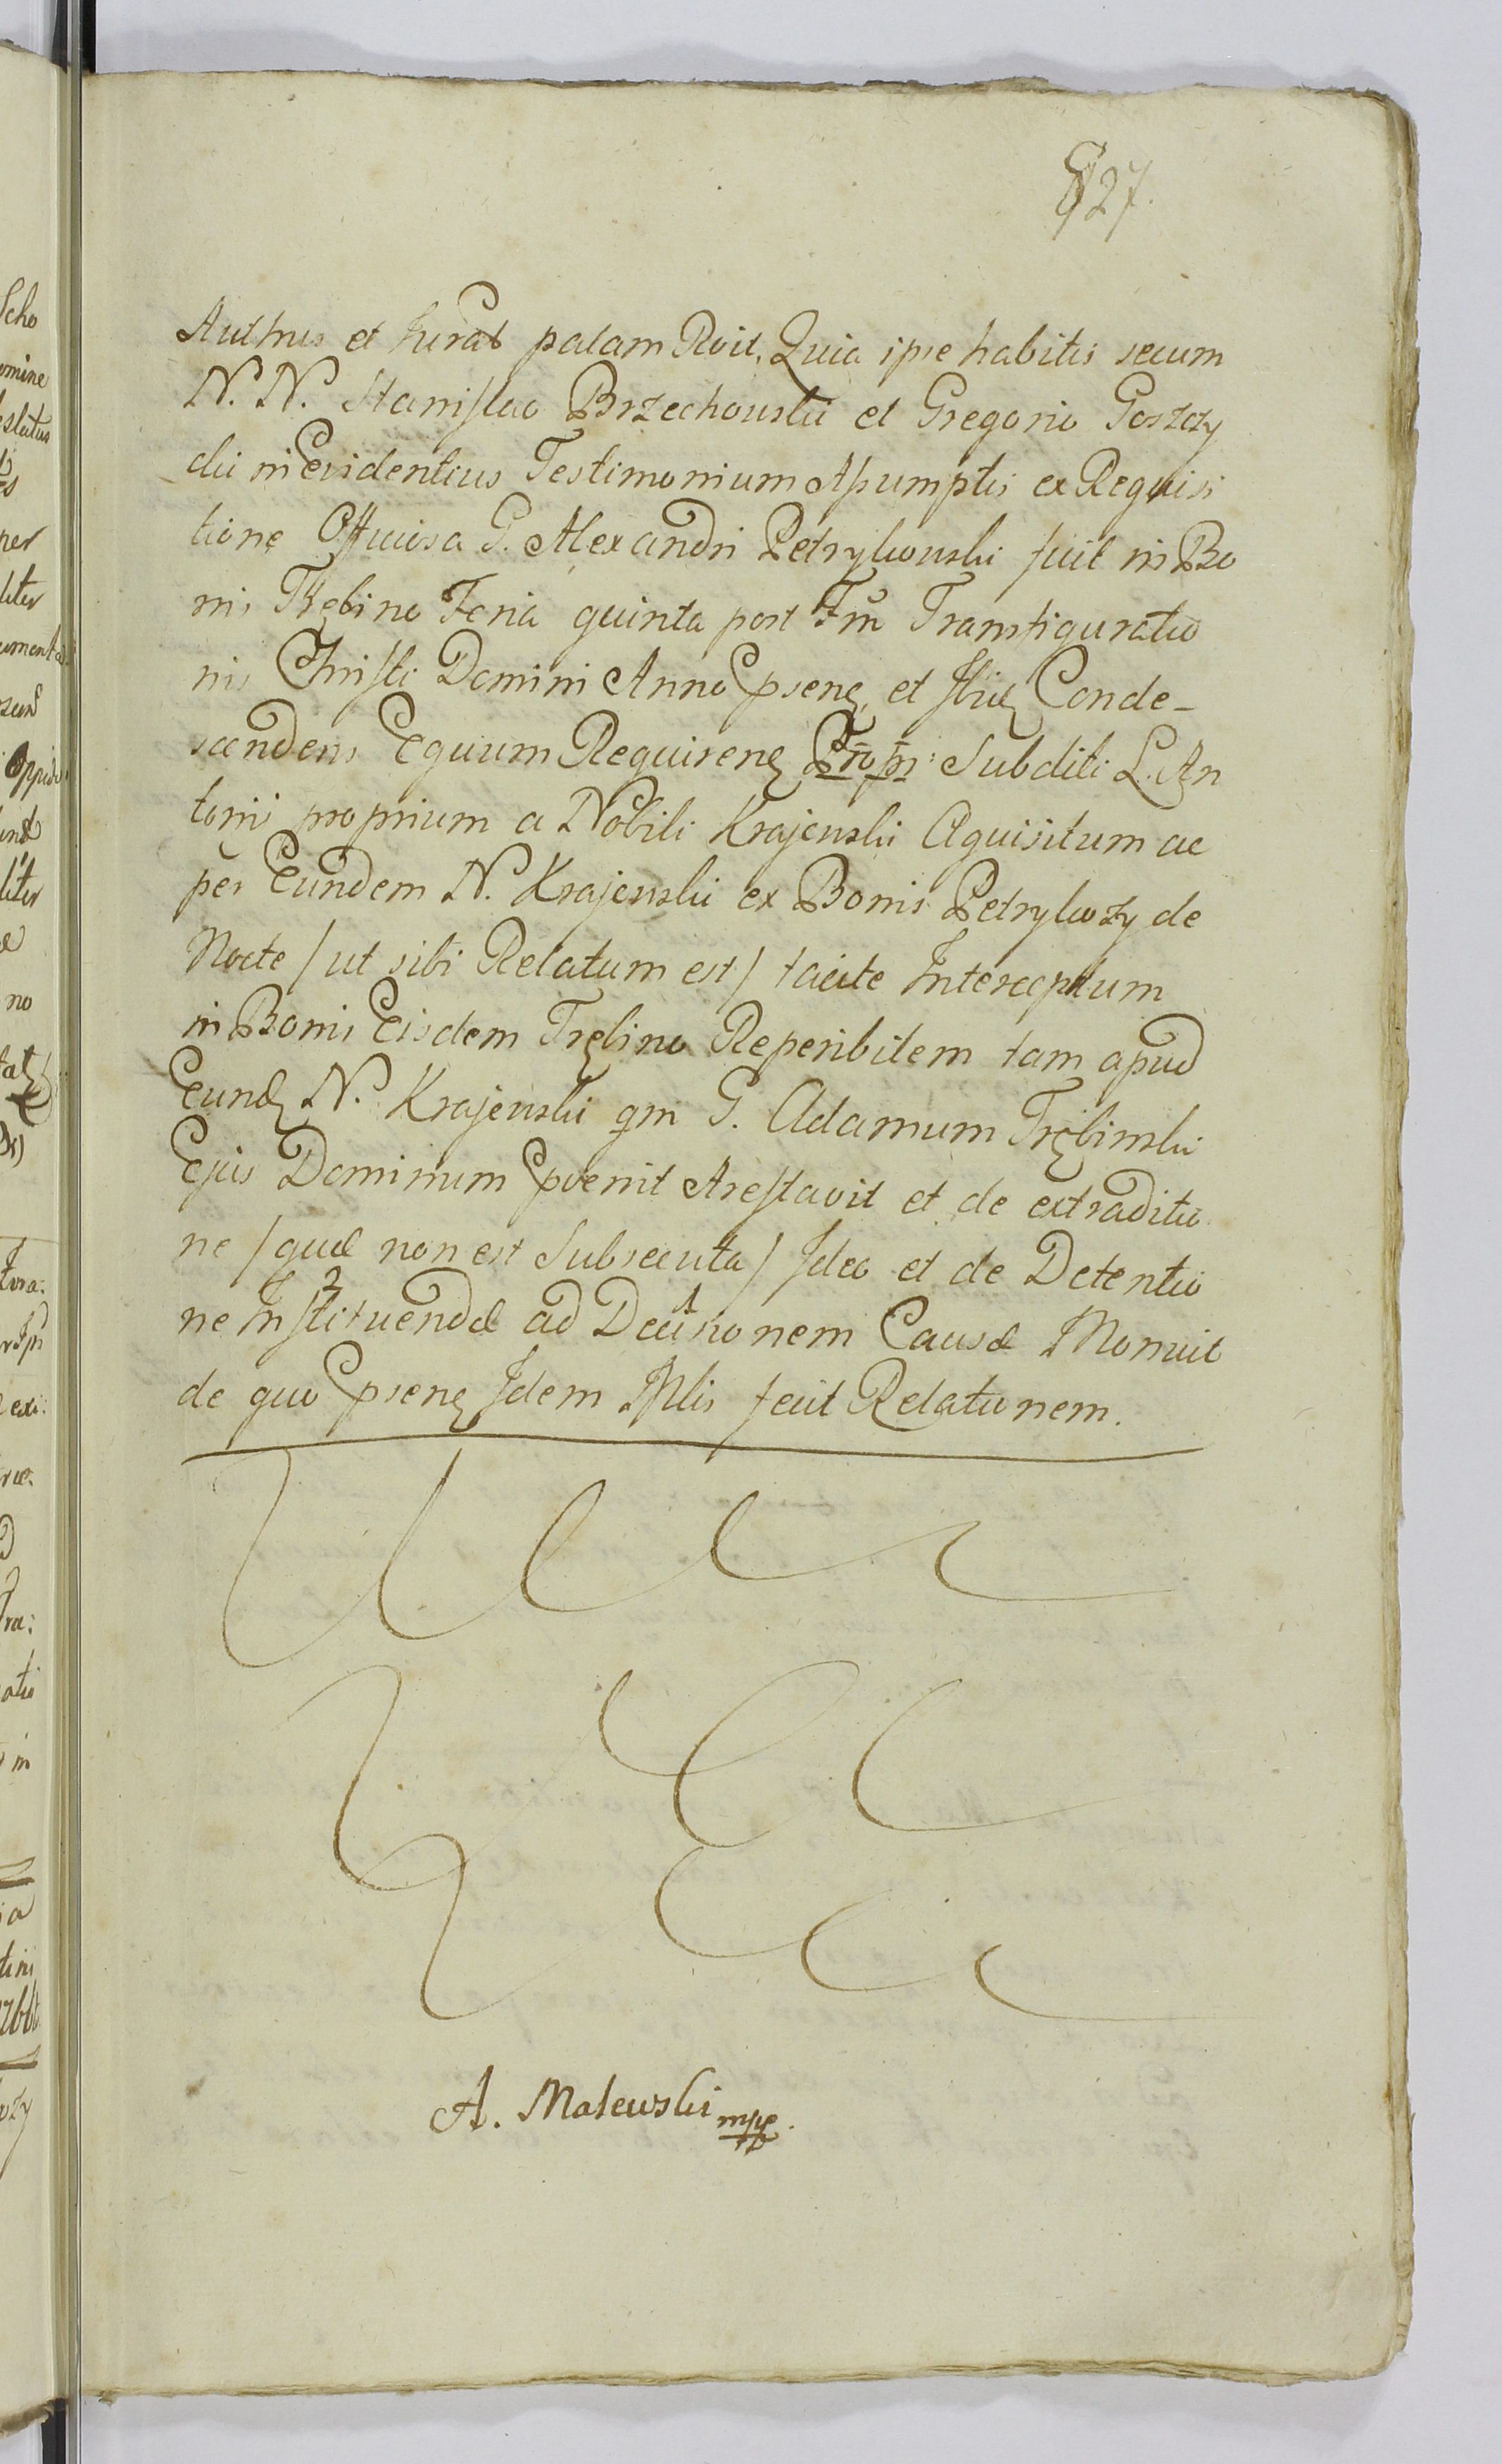 827.
Authus et Jurat palam Rvit, Quia ipse habitis secum
N. N. Stanislao Brzechowski et Gregorio Goszczy
cki in Evidentius Testimonium Assumptis ex Requisi
tione Officiosa G. Alexandri Petrykowski fuit in Bo
nis Trębino Feria quinta post Ftū Transfiguratio
nis Christi Domini Anno Epsenę, et Ibidę Conde-
scendens Equum Requirenę Propr: Subditi L. An
tonij proprium a Nobili Krajewski Aquisitum ac
per Eundem N. Krajewski ex Bonis Petrykozy de
Nocte / ut sibi Relatum est / tacite Interceptum
in Bonis Eisdem Trębino Reperibilem tam apud
Eundę N. Krajewski qm G. Adamum Trębinski
Ejus Dominum Epvenit Arestavit et de extraditio
ne / quæ non est Subsecuta / Ideo et de Detentio
ne Instituendæ ad Decisionem Causæ Monuit
de quo Epsenę Idem Mlis fecit Relationem.
A. Malewski mpp.